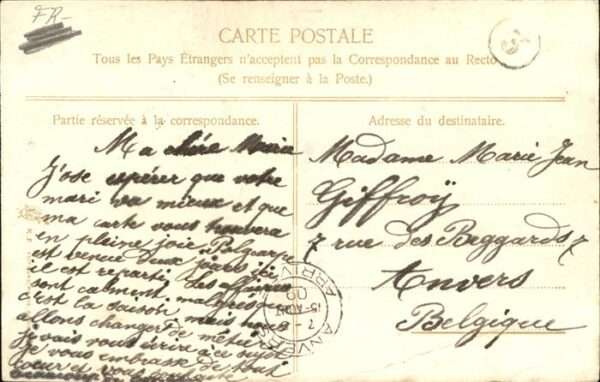 FR-
CARTE POSTALE
Tous les Pays Étrangers n'acceptent pas la Correspondance au Recto
(Se renseigner à la Poste.)
Partie réservée à la correspondance.
Ma chère Marie
J'ose espérer que votre
mari va mieux et que
ma carte vous trouvera
en pleine joie
est venue deux jours ici
il est reparti Les affaires
sont calment. malgrés que
c'est la saison, mais nous
allons changer de métier
je vais vous écrire à ce sujet
je vous embrasse de tout
cœur et vous souhaite
beaucoup de
Adresse du destinataire.
Madame Marie Jean
Giffroÿ
7 rue des Beggards 7
Anvers
Belgique
ANVERS
7-
15 AOUT
09
ARRIVÉE